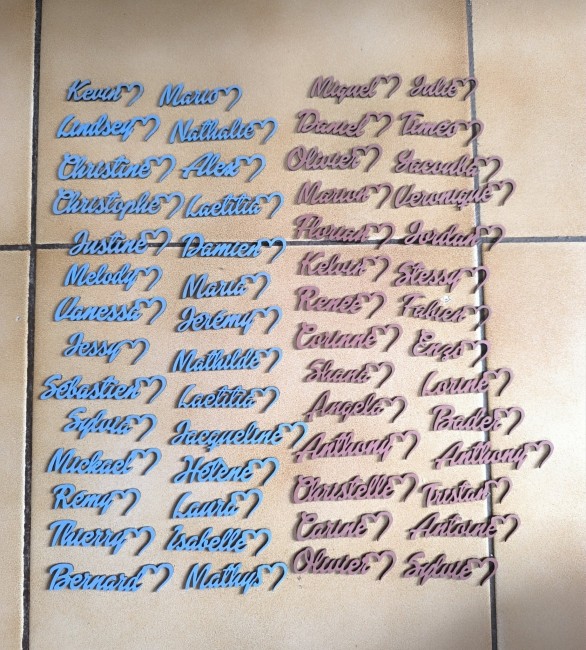 Kevin Mario Miguel Julie
Lindsey Nathalie Daniel Timeo
Christine Alex Olivier Yacouba
Christophe Laetitia Marion Veronique
Justine Damien Florian Jordan
Melody Maria Kelvin Stessy
Vanessa Jérémy Renee Fabien
Jessy Mathilde Corinne Enzo
Sebastien Laetitia Shana Lorine
Sylvia Jacqueline Angela Bader
Mickael Hélène Anthony Anthony
Remy Laura Christelle Tristan
Thierry Isabelle Carine Antoine
Bernard Mathys Olivier Sylvie